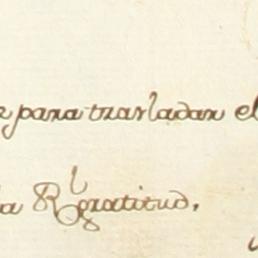 para trasladar el
la Rl gratitud.